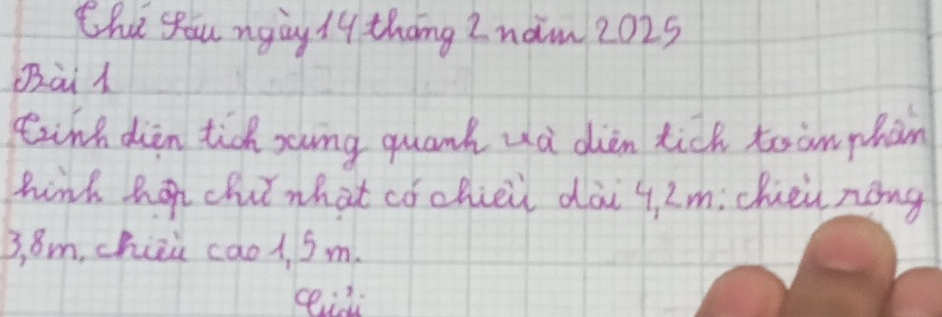 Thứ Sáu ngày 14 tháng 2 năm 2025
Bài 1
Tính diện tích xung quanh và diện tích toàn phần
hình hộp chữ nhật có chiều dài 4,2m; chiều rộng
3,8m, chiều cao 1,5 m.
Giải